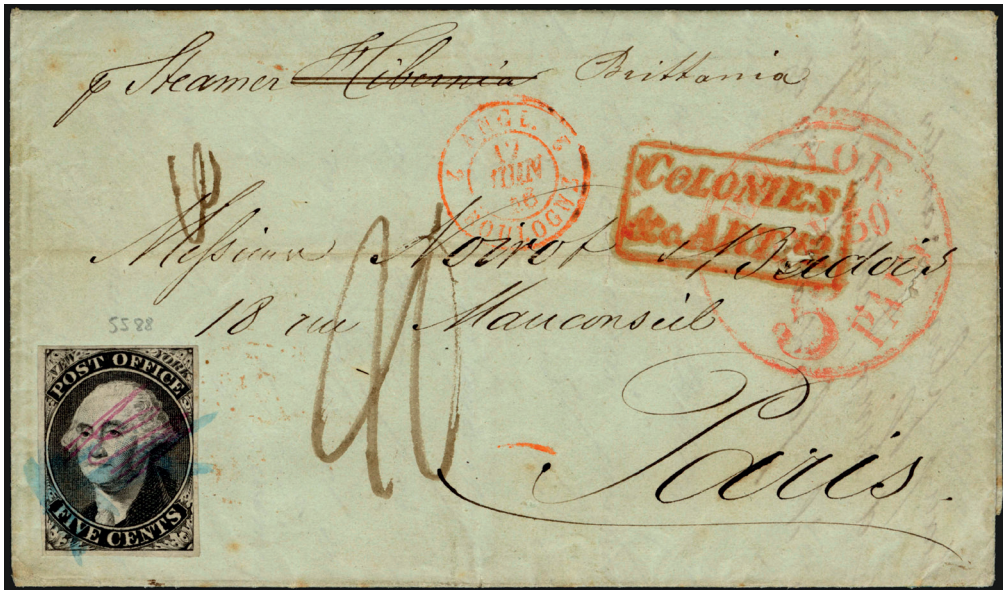 p Steamer Hibernia Brittania
2 ANGL. 2
17
JUIN
46
BOULOGNE
COLONIES
&c. ART. 12
YORK
30
5
PAID
Messieurs Noirot
18 rue Mauconseil
Paris.
5588
NEW YORK
POST OFFICE
FIVE CENTS